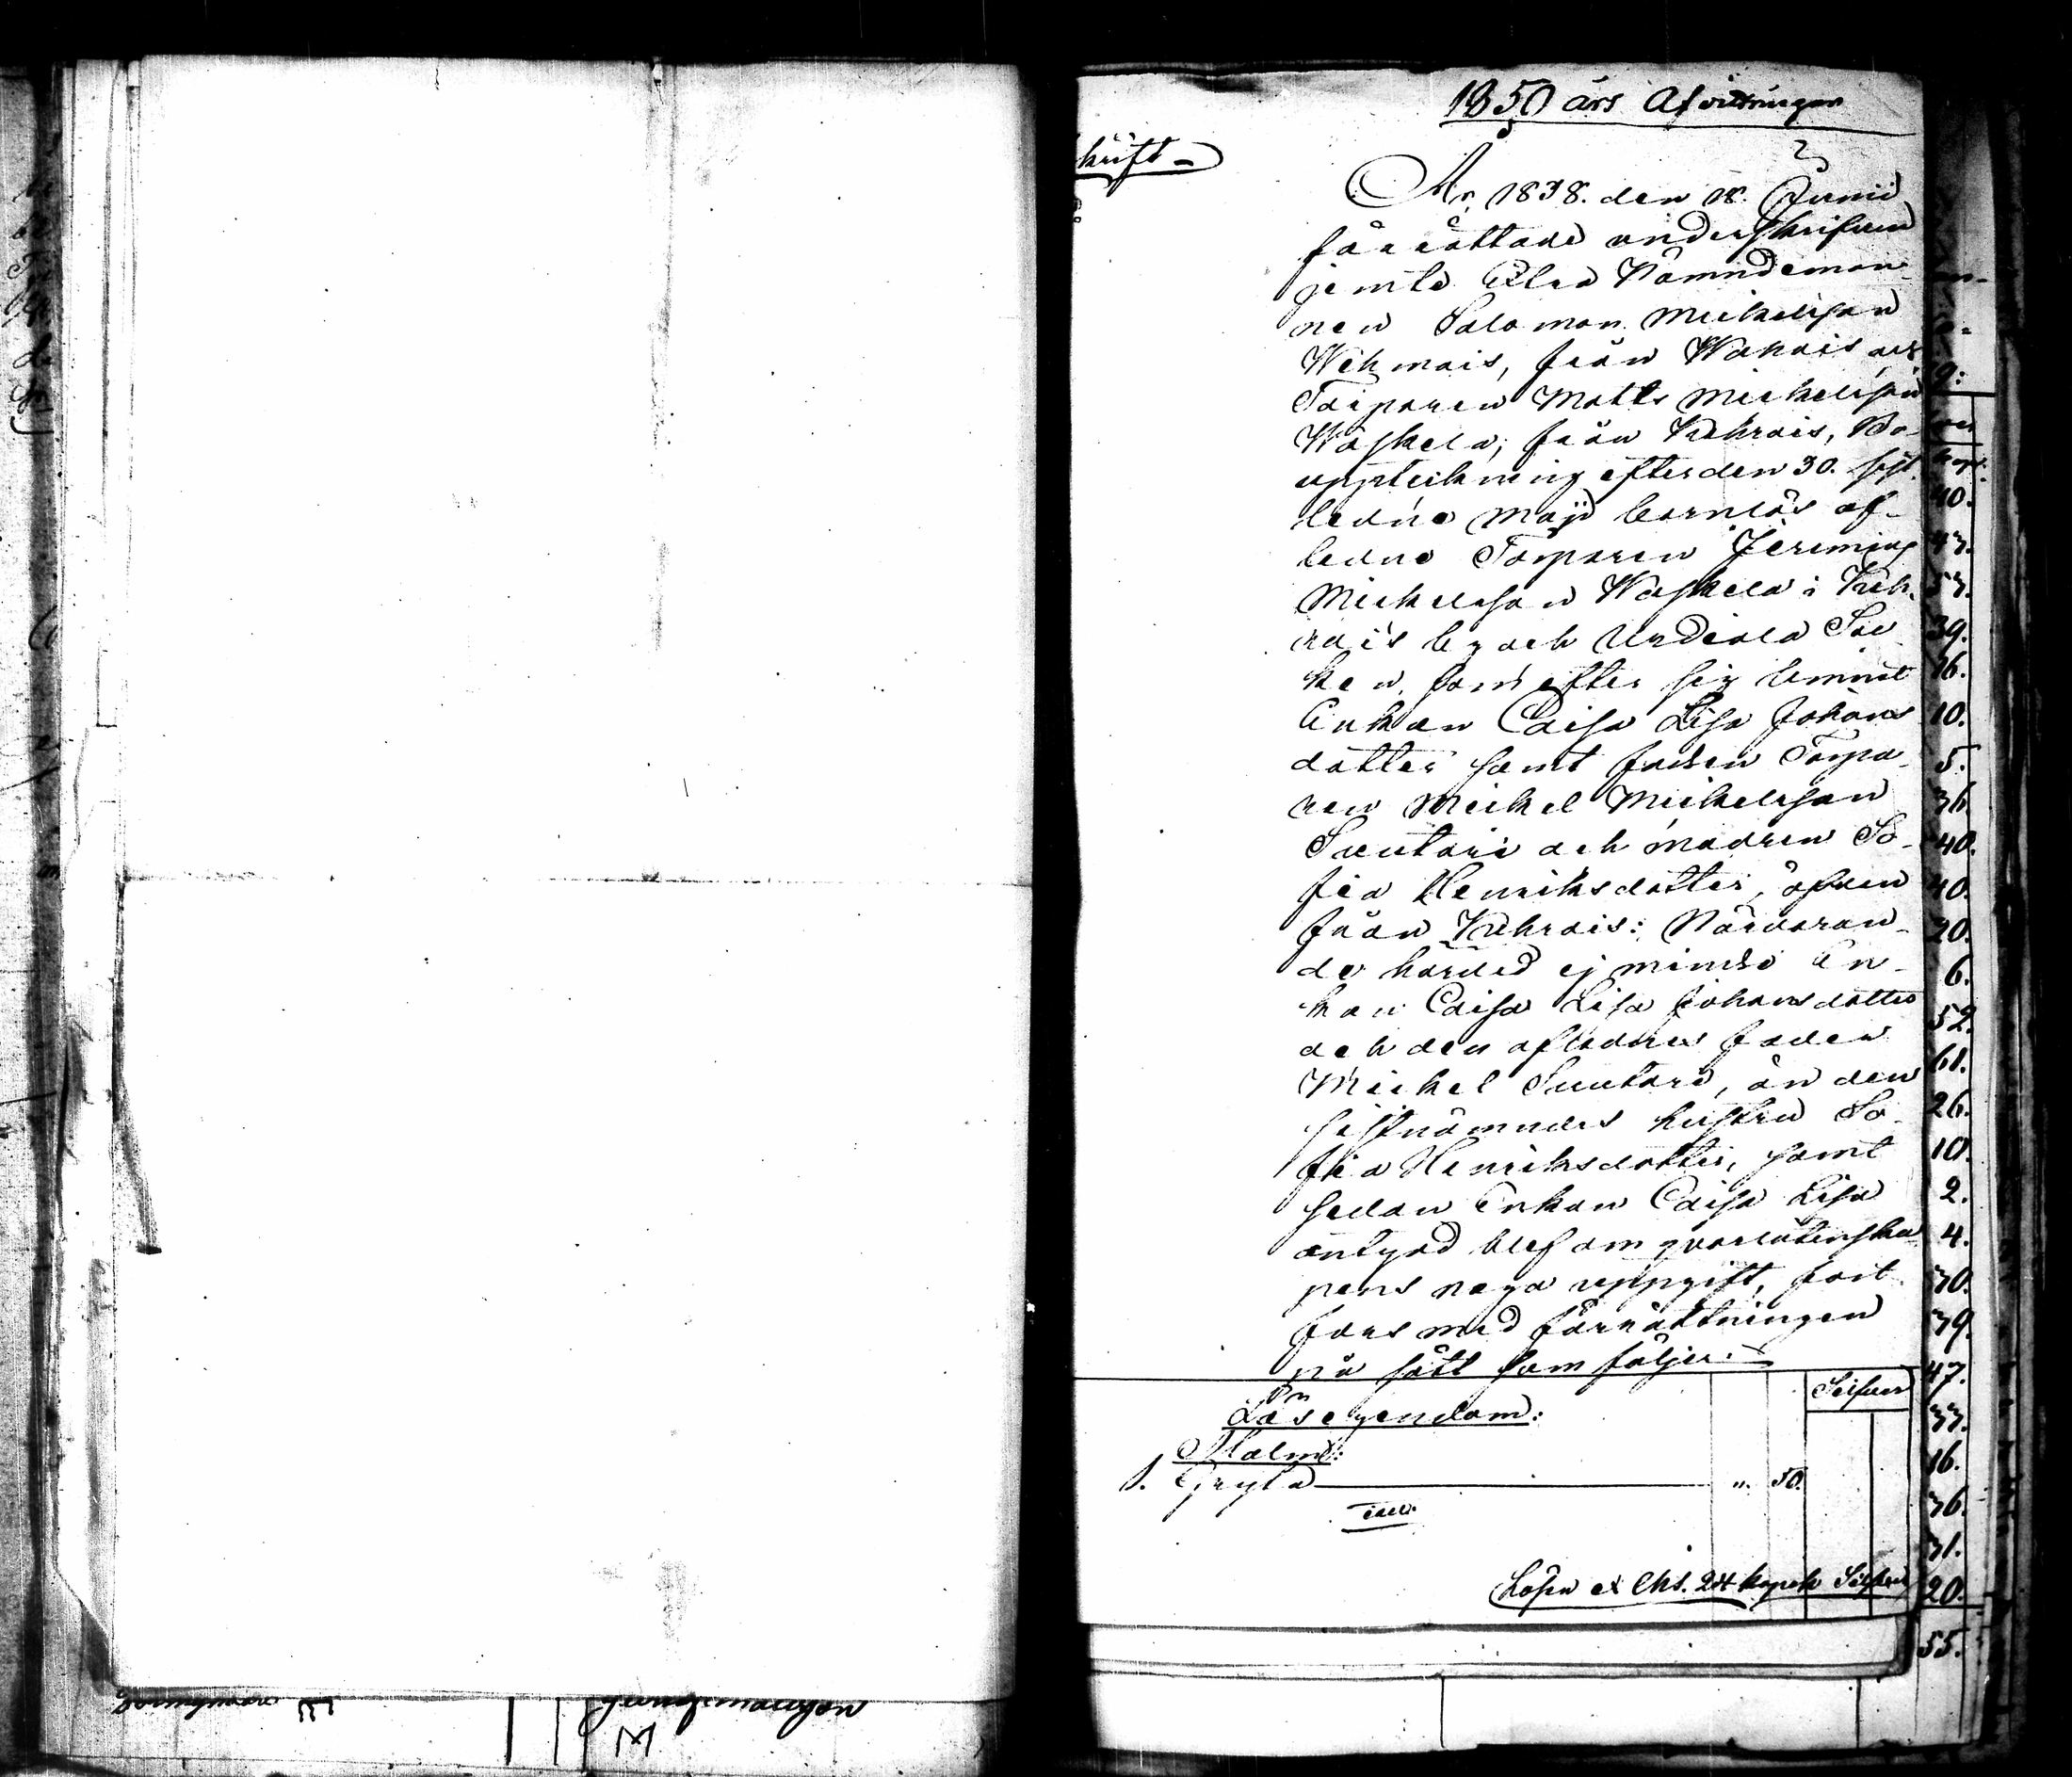 1850 års Afvittningar
krift
År 1838. den 18. Junii
förrättade underskrifven
jemte Extra Nämndeman-
nen Salomon Mickelsson
Wehmais, från Wanais och
Torparen Matts Mickelsson
Waskela, från Kehrais, Bo-
uppteckning efter den 30. sist-
ledne Maji barnlös af-
ledne Torparen Jeremias
Mickelsson Waskela i Keh-
rais by och Urdiala Soc-
ken, som efter sig lemnat
Enkan Caisa Lisa Johans
dotter samt fadren Torpa-
ren Mickel Mickelsson
Suutari och modren So-
fia Henriksdotter, äfven
från Kehrais: Närvaran-
de härved ej mindre En-
kan Caisa Lisa Johansdotter
och den aflednes fader
Mickel Suutari, än den
sistnämndes hustru So-
fia Henriksdotter, samt
sedan Enkan Caisa Lisa
antyd blef om qvarlåtenska-
pens noga uppgift, fort-
fors med förrättningen
på sätt som följer:
Silfver
Lösegendom:
Malm:
1. Gryta " 50.
Lösen ex Chs. 24 kopek Silfver
9:
kop:
40.
47.
57.
39.
16.
10.
5.
36.
40.
40.
20.
6.
52.
61.
26.
10.
2.
4.
70.
79.
47.
77.
16.
76.
71.
20.
55.